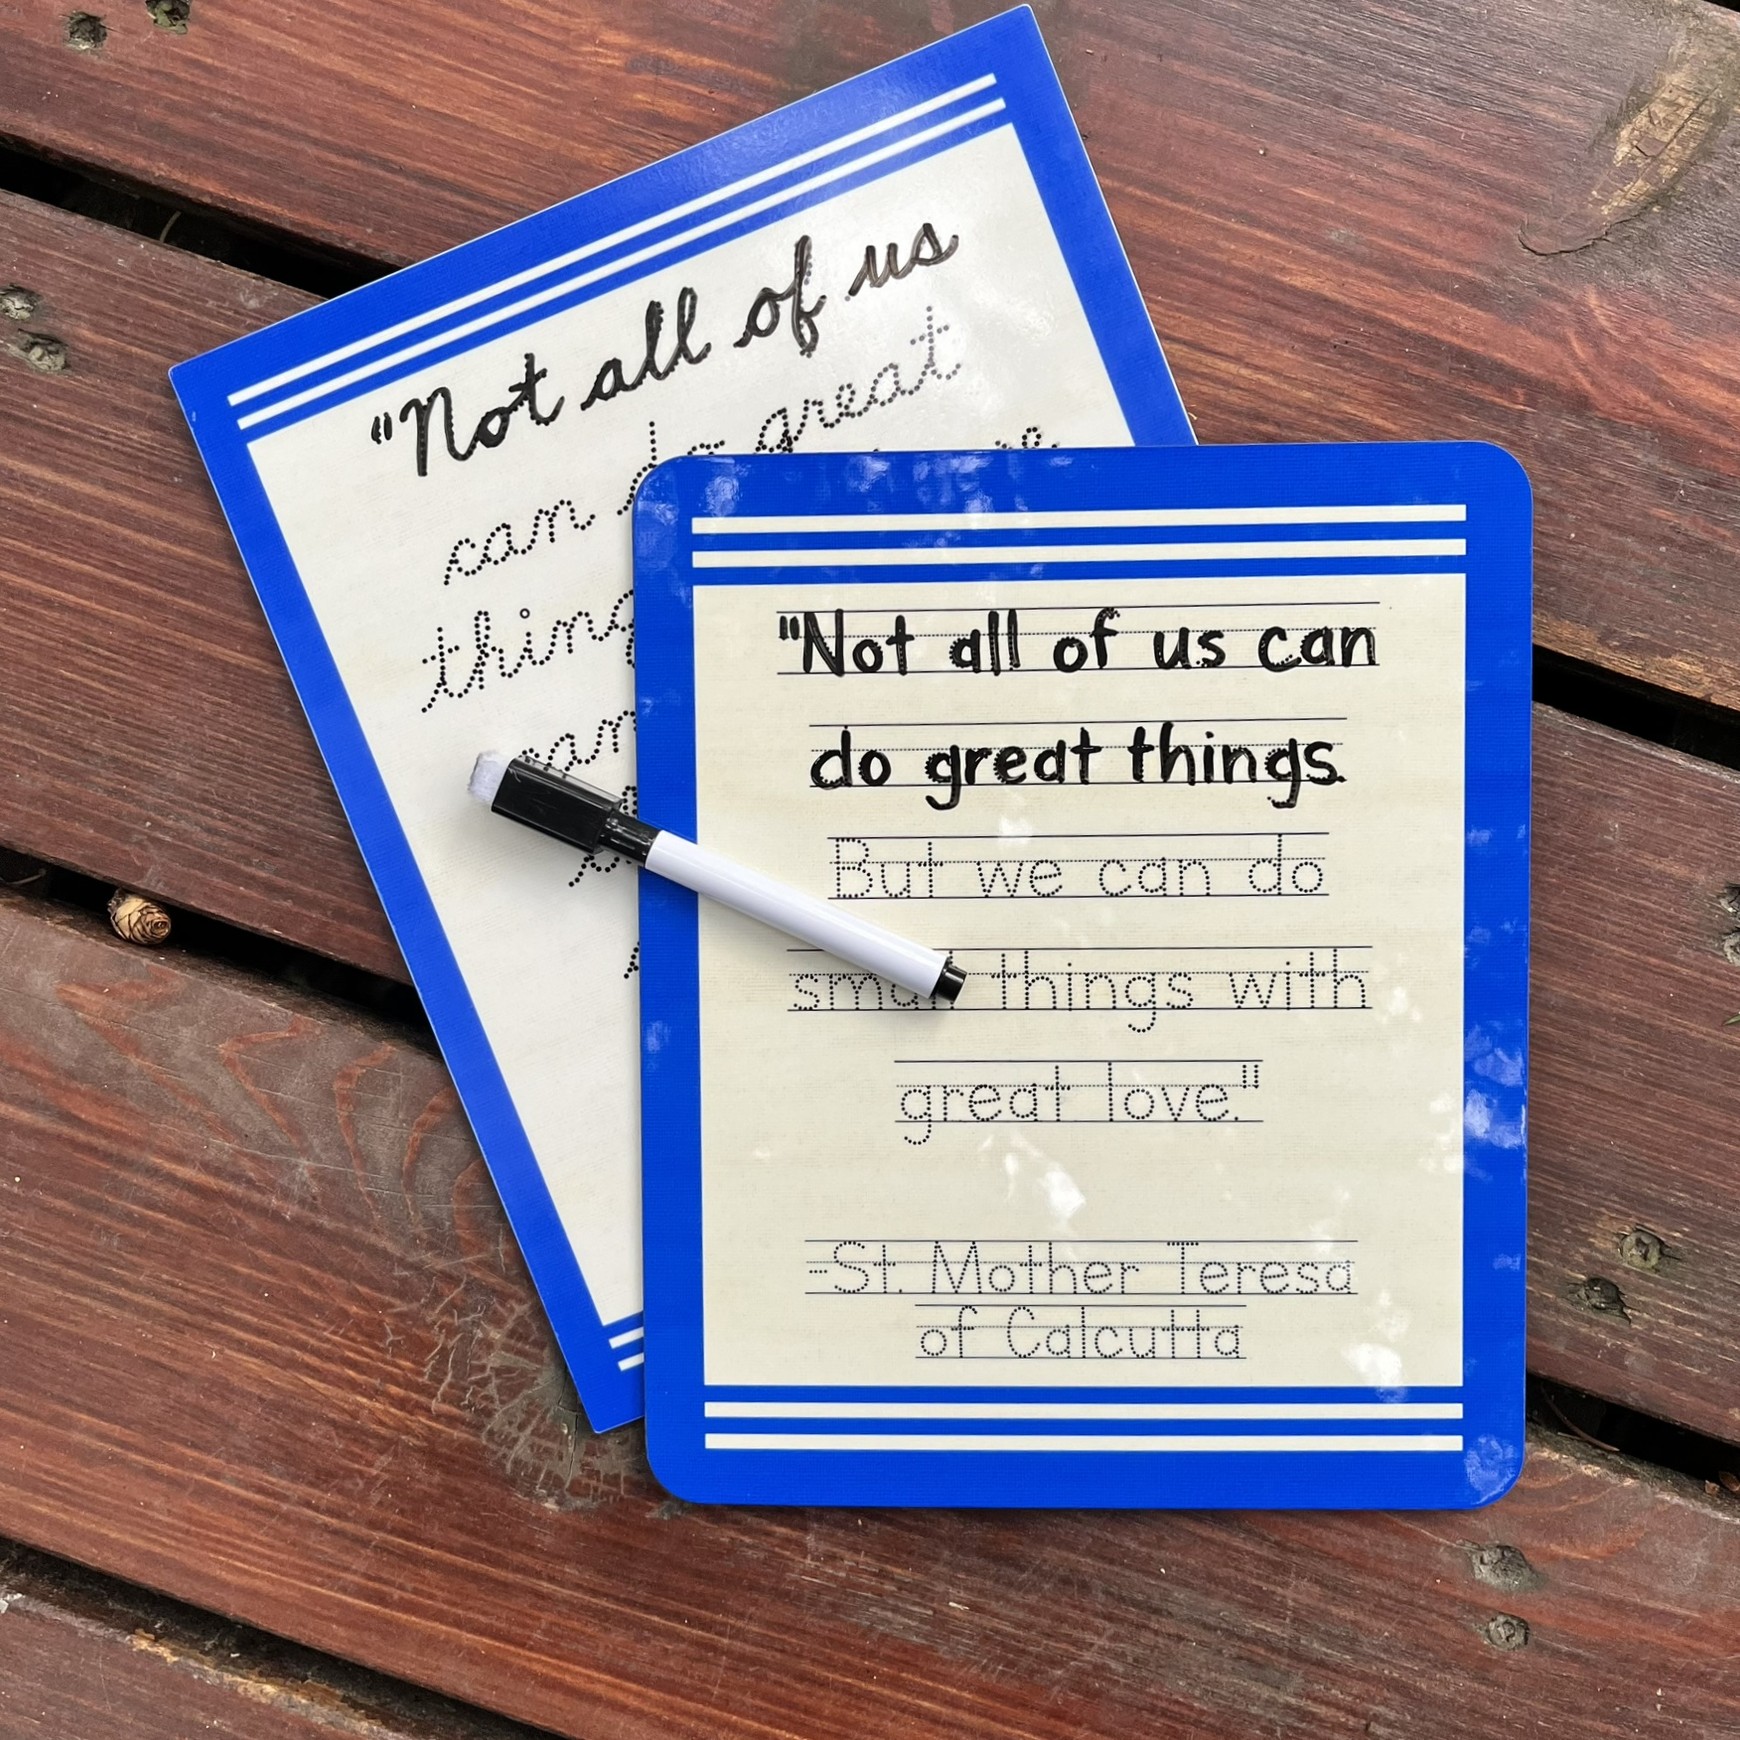 "Not all of us
can do great
"Not all of us can
do great things.
But we can do
small things with
great love."
-St. Mother Teresa
of Calcutta